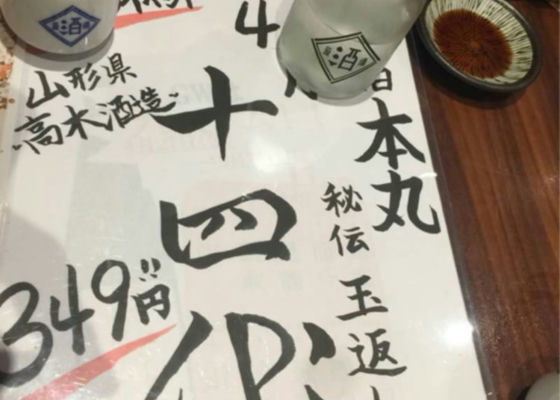 酒
酒
4
本丸
秘伝玉返
十四代
山形県
高木酒造
349円